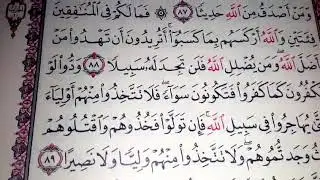 وَمَنْ أَصْدَقُ مِنَ اللَّهِ حَدِيثًا ٨٧ فَمَا لَكُمْ فِي الْمُنَافِقِينَ
فِئَتَيْنِ وَاللَّهُ أَرْكَسَهُم بِمَا كَسَبُوا أَتُرِيدُونَ أَن تَهْدُوا مَنْ
أَضَلَّ اللَّهُ وَمَن يُضْلِلِ اللَّهُ فَلَن تَجِدَ لَهُ سَبِيلًا ٨٨ وَدُّوا لَوْ
تَكْفُرُونَ كَمَا كَفَرُوا فَتَكُونُونَ سَوَاءً فَلَا تَتَّخِذُوا مِنْهُمْ أَوْلِيَاءَ
حَتَّى يُهَاجِرُوا فِي سَبِيلِ اللَّهِ فَإِن تَوَلَّوْا فَخُذُوهُمْ وَاقْتُلُوهُمْ
حَيْثُ وَجَدتُّمُوهُمْ وَلَا تَتَّخِذُوا مِنْهُمْ وَلِيًّا وَلَا نَصِيرًا ٨٩